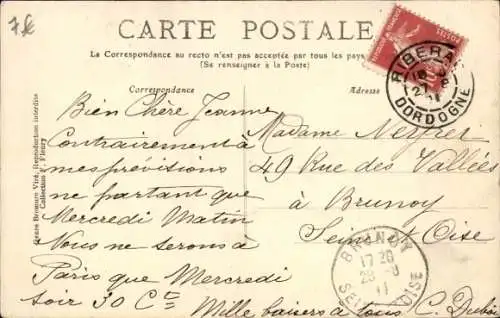 7 f
CARTE POSTALE
La Correspondance au recto n'est pas acceptée par tous les pays
(Se renseigner à la Poste)
Correspondance
Adresse
RIBERAC
DORDOGNE
Bien Chère Jeanne
Contrairement à
mes prévisions
ne partant que
Mercredi Matin
Nous ne serons à
Paris que Mercredi
soir 30 Ct
Mille baisers à tous C. Dubois
Madame Nerfret
49 Rue des Vallées
à Brunoy
Seine et Oise
BRUNOY
17 20
28 -8
11
SEINE ET OISE
Reproduction interdite
Collection F. Fleury